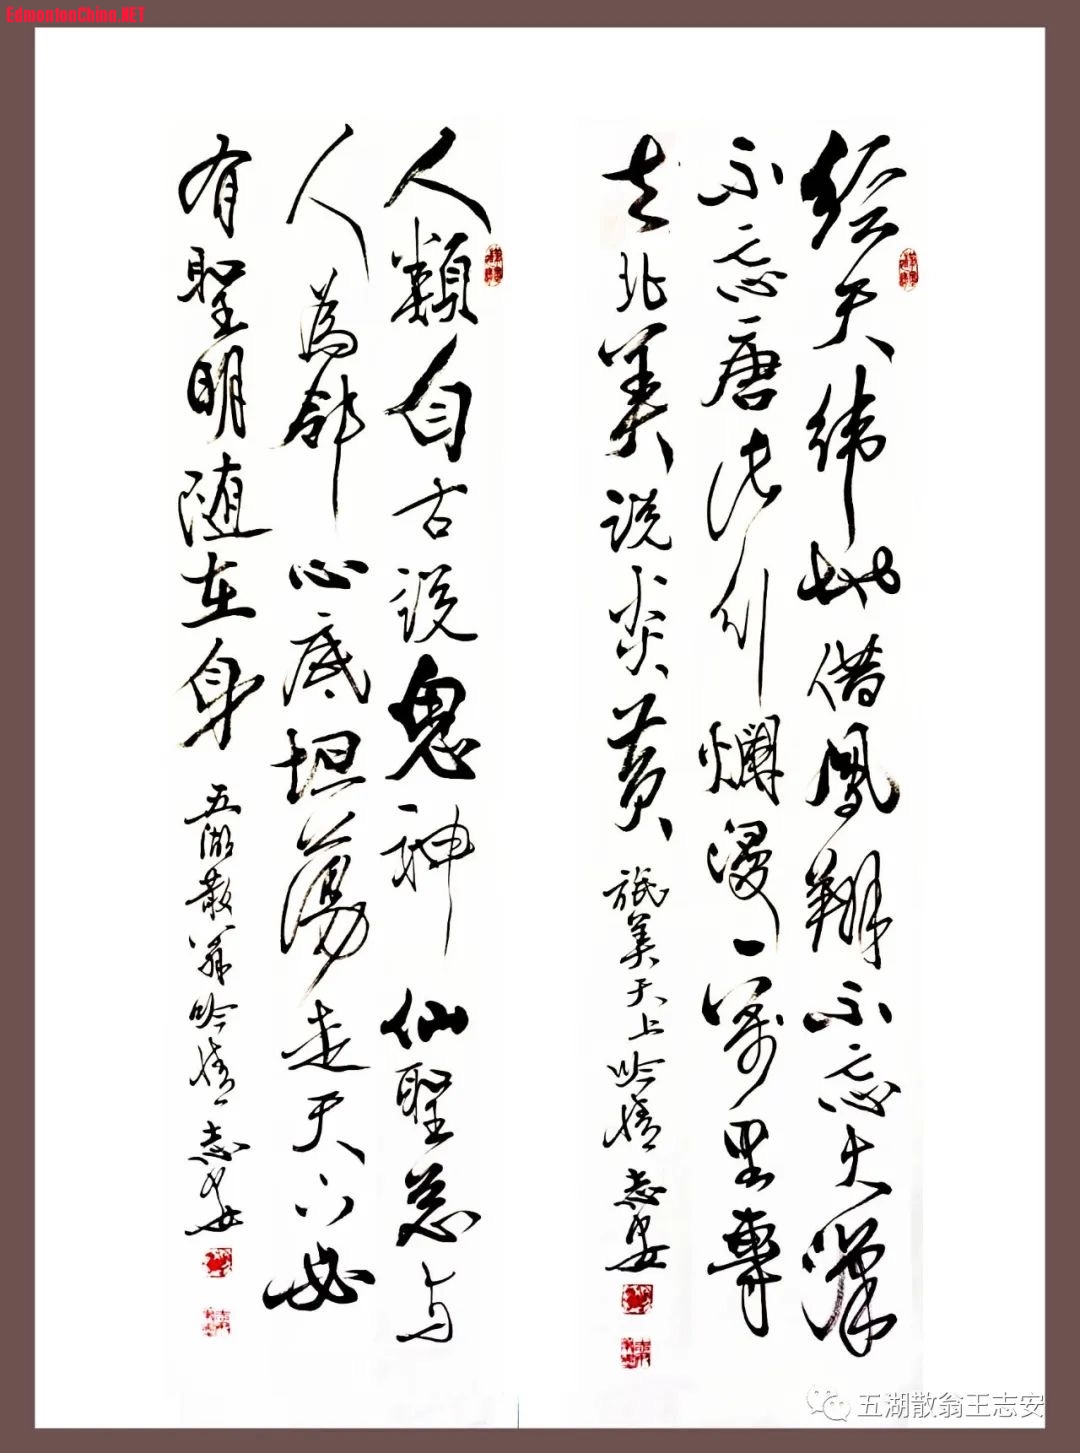 EdmontonChina.NET
经天纬地借凤翔不忘大汉
不忘唐诗引烂漫一万里专
去北美说炎黄 旅美天上吟情 志安
人類自古説鬼神仙聖总与
人為邻心底坦蕩走天下必
有聖明随在身 五湖散翁吟情 志安
五湖散翁王志安